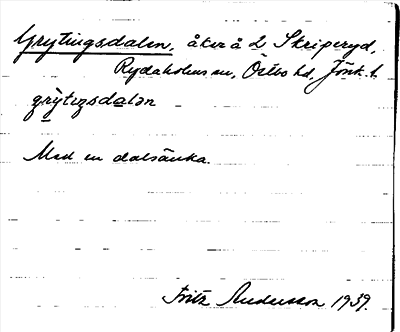 Grytingsdalen, åker å 2 Skriperyd,
Rydaholms sn, Östbo hd, Jönk. l.
grỳtiŋsdalən
Med en dalsänka.
Fritz Andersson 1939.